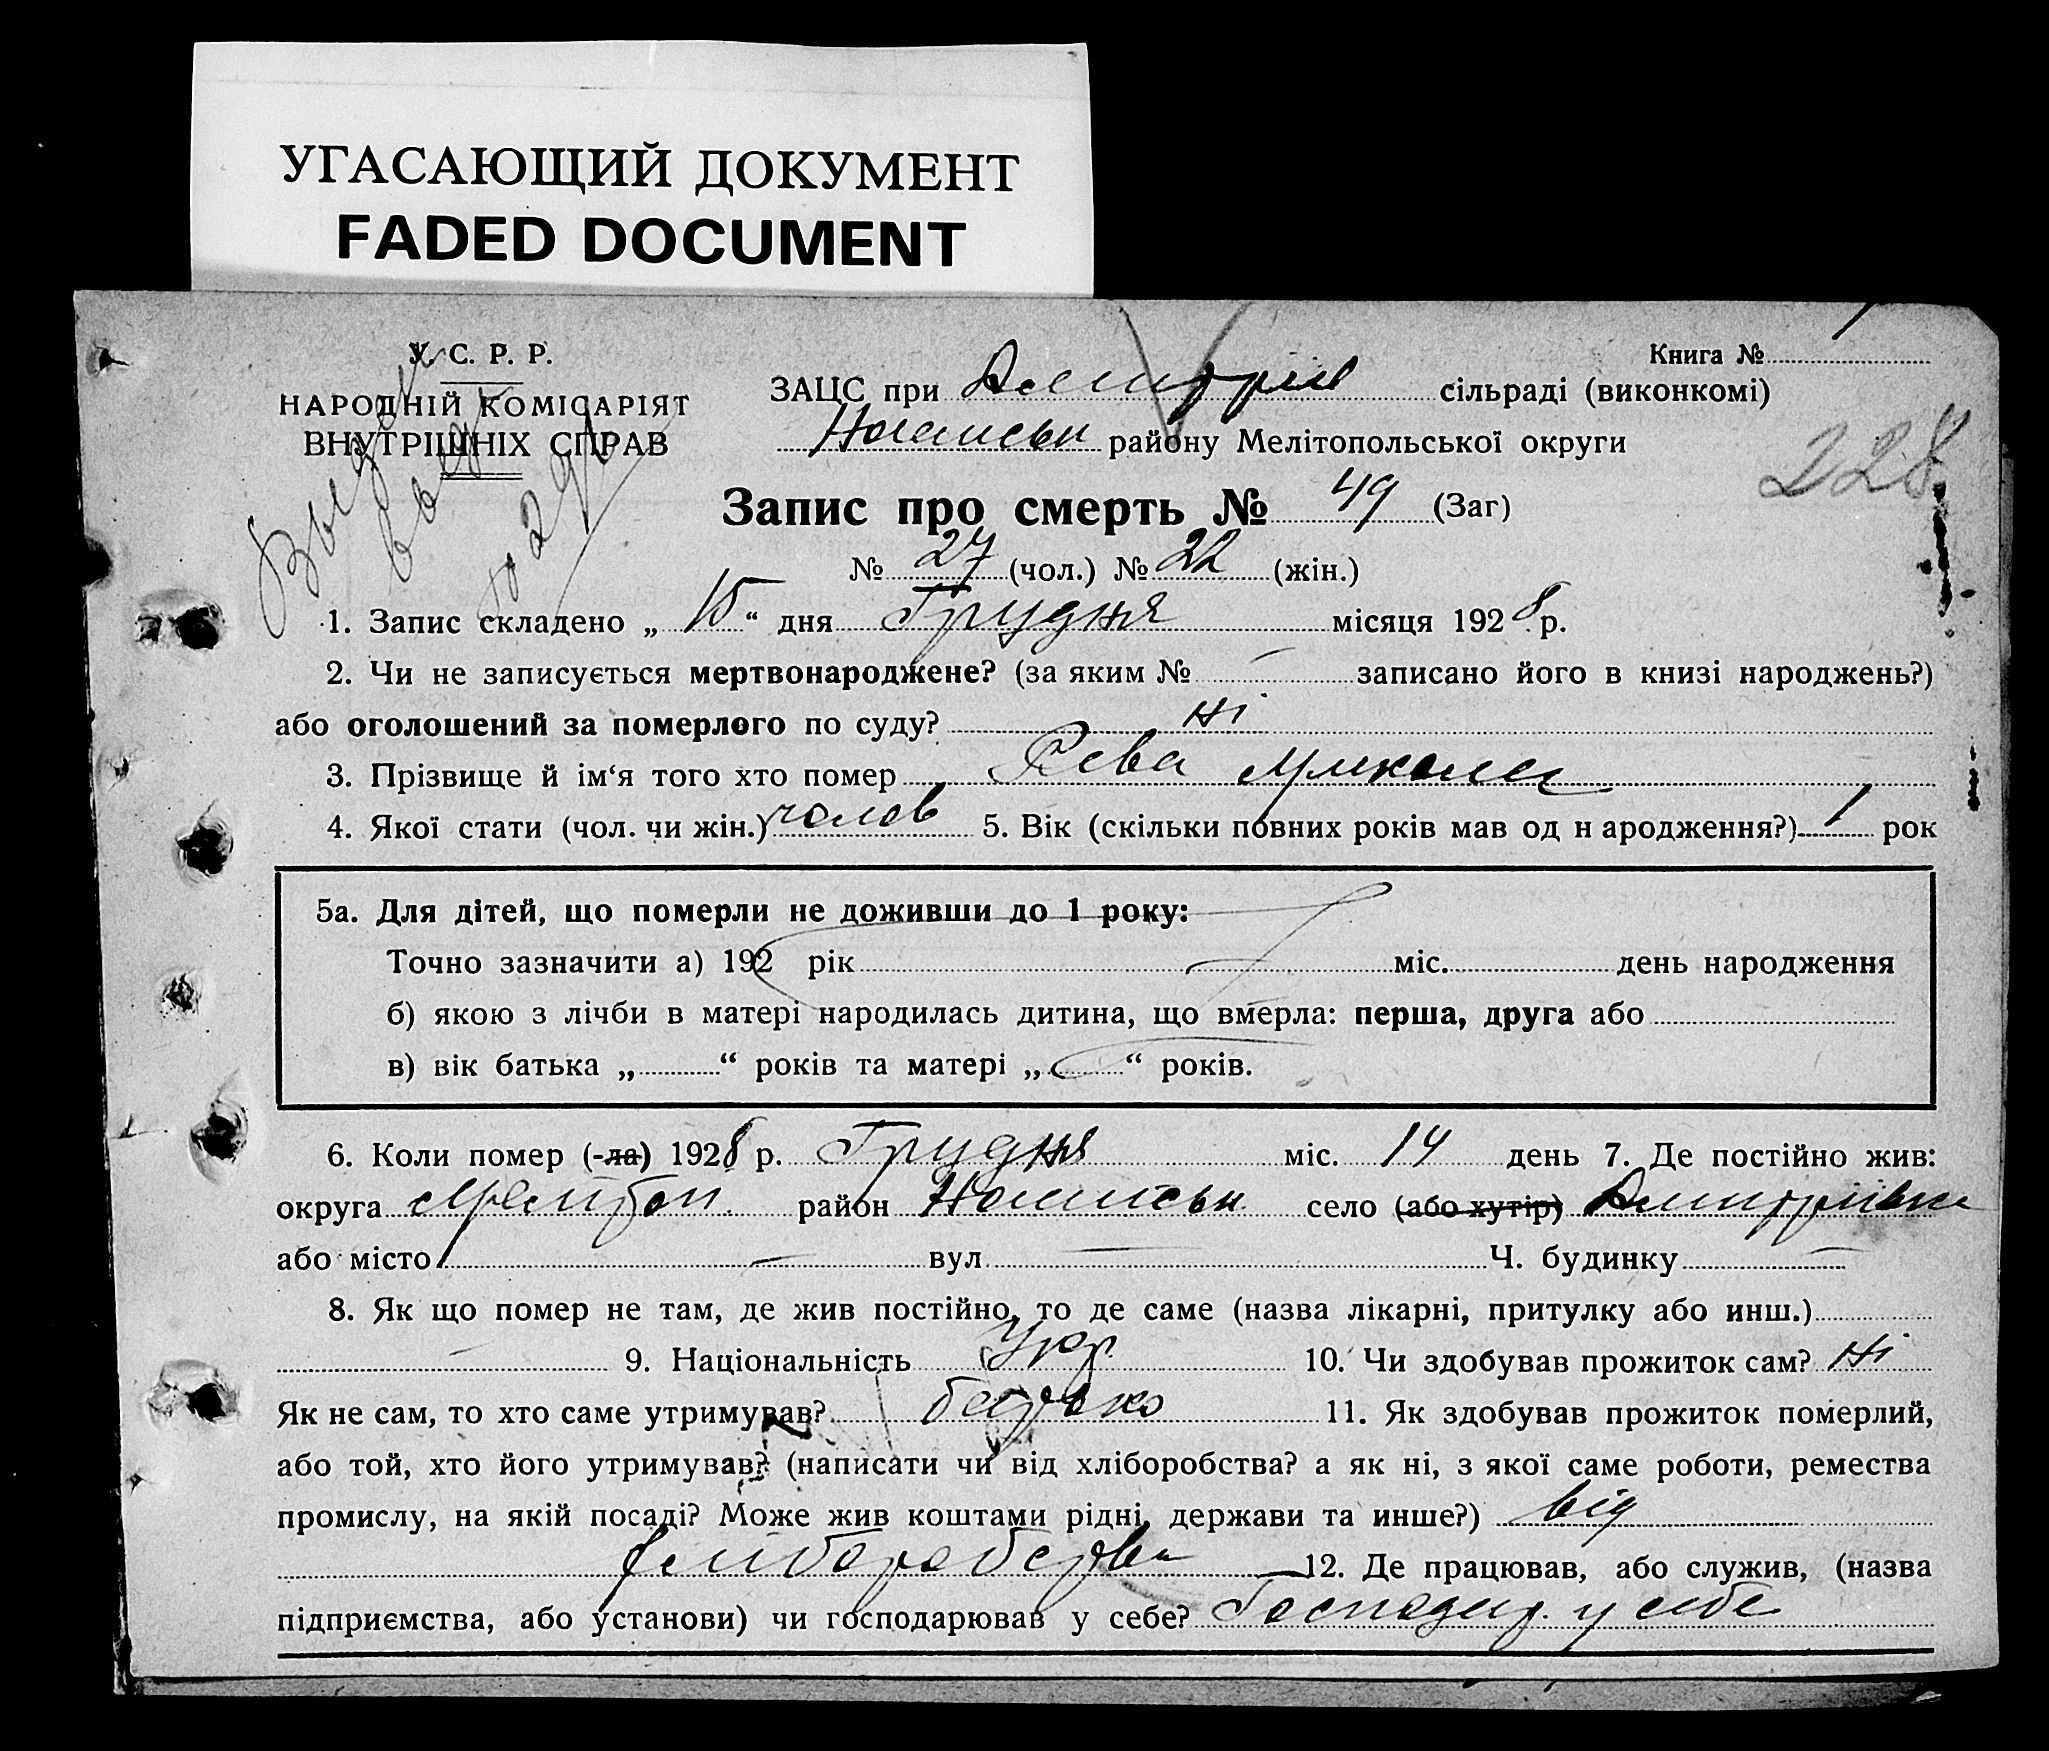 УГАСАЮЩИЙ ДОКУМЕНТ
FADED DOCUMENT
У. С. Р. Р.
НАРОДНІЙ КОМІСАРІЯТ
ВНУТРІШНІХ СПРАВ
Книга №
ЗАЦС при Дмитрів сільраді (виконкомі)
Ногайськ району Мелітопольської округи
228
Запис про смерть № 49 (Заг)
№ 27 (чол.) № 22 (жін.)
1. Запис складено „ 15 “ дня Грудня місяця 1928 р.
2. Чи не записується мертвонароджене? (за яким № — записано його в книзі народжень?)
або оголошений за померлого по суду? Ні
3. Прізвище й ім‘я того хто помер Рева Микола
4. Якої стати (чол. чи жін.) чолов 5. Вік (скільки повних років мав од н ародження?) 1 рок
5а. Для дітей, що померли не доживши до 1 року:
Точно зазначити а) 192 рік міс. день народження
б) якою з лічби в матері народилась дитина, що вмерла: перша, друга або
в) вік батька „ “ років та матері „ “ років.
6. Коли помер (-ла) 1928 р. Грудня міс. 14 день 7. Де постійно жив:
округа Мелітоп. район Ногайськ село (або хутір) Дмитрівка
або місто — вул — Ч. будинку —
8. Як що помер не там, де жив постійно, то де саме (назва лікарні, притулку або инш.)
— 9. Національність Укр. 10. Чи здобував прожиток сам? Ні
Як не сам, то хто саме утримував? батько 11. Як здобував прожиток померлий,
або той, хто його утримував? (написати чи від хліборобства? а як ні, з якої саме роботи, ремества
промислу, на якій посаді? Може жив коштами рідні, держави та инше?) від
хліборобства 12. Де працював, або служив, (назва
підприємства, або установи) чи господарював у себе? Господар. у себе